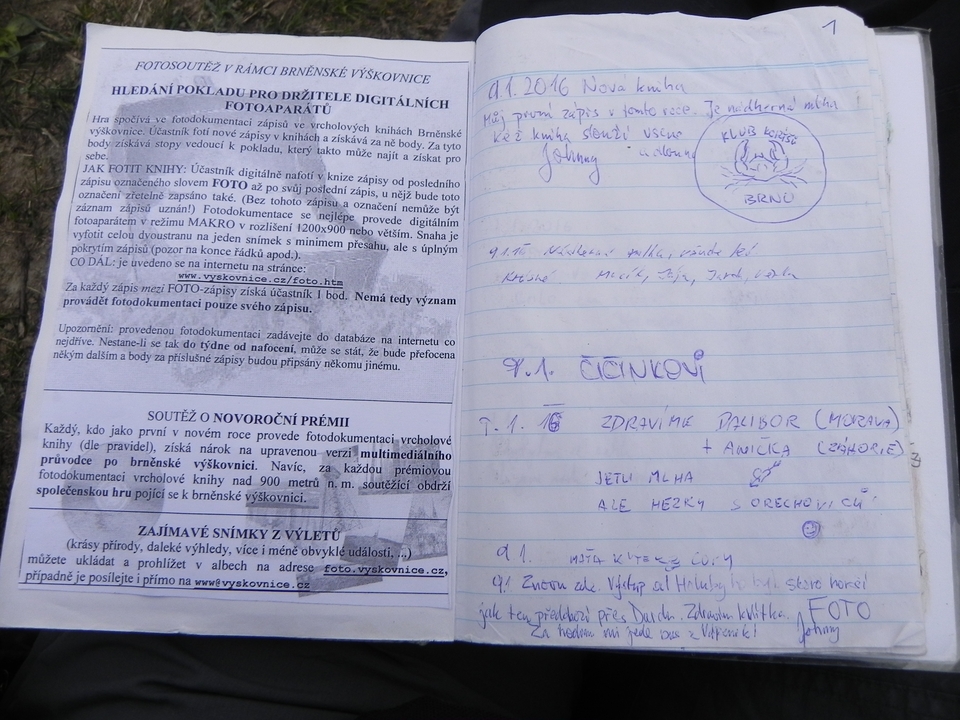 FOTOSOUTĚŽ V RÁMCI BRNĚNSKÉ VÝŠKOVNICE
HLEDÁNÍ POKLADU PRO DRŽITELE DIGITÁLNÍCH
FOTOAPARÁTŮ
Hra spočívá ve fotodokumentaci zápisů ve vrcholových knihách Brněnské
výškovnice. Účastník fotí nové zápisy v knihách a získává za ně body. Za tyto
body získává stopy vedoucí k pokladu, který takto může najít a získat pro
sebe.
JAK FOTIT KNIHY: Účastník digitálně nafotí v knize zápisy od posledního
zápisu označeného slovem FOTO až po svůj poslední zápis, u nějž bude toto
označení zřetelně zapsáno také. (Bez tohoto zápisu a označení nemůže být
záznam zápisů uznán!) Fotodokumentace se nejlépe provede digitálním
fotoaparátem v režimu MAKRO v rozlišení 1200x900 nebo větším. Snaha je
vyfotit celou dvoustranu na jeden snímek s minimem přesahu, ale s úplným
pokrytím zápisů (pozor na konce řádků apod.).
CO DÁL: je uvedeno se na internetu na stránce:
www.vyskovnice.cz/foto.htm
Za každý zápis mezi FOTO-zápisy získá účastník 1 bod. Nemá tedy význam
provádět fotodokumentaci pouze svého zápisu.
Upozornění: provedenou fotodokumentaci zadávejte do databáze na internetu co
nejdříve. Nestane-li se tak do týdne od nafocení, může se stát, že bude přefocena
někým dalším a body za příslušné zápisy budou připsány někomu jinému.
SOUTĚŽ O NOVOROČNÍ PRÉMII
Každý, kdo jako první v novém roce provede fotodokumentaci vrcholové
knihy (dle pravidel), získá nárok na upravenou verzi multimediálního
průvodce po brněnské výškovnici. Navíc, za každou prémiovou
fotodokumentaci vrcholové knihy nad 900 metrů n. m. soutěžící obdrží
společenskou hru pojící se k brněnské výškovnici.
ZAJÍMAVÉ SNÍMKY Z VÝLETŮ
(krásy přírody, daleké výhledy, více i méně obvyklé události, ...)
můžete ukládat a prohlížet v albech na adrese foto.vyskovnice.cz,
případně je posílejte i přímo na www@vyskovnice.cz
1
9.1.2016 Nová kniha
Můj první zápis v tomto roce. Je nádherná mlha
kéž kniha slouží
Johnny
KLUB
BRNO
9.1. ČIČINKOVI
9.1. 16 ZDRAVÍME DALIBOR (MORAVA)
+ ANIČKA (ZÁHORIE)
JETLI MLHA
ALE HEZKY S OŘECHOVICÍ!
9.1.
9.1 Znovu zde. Výstup od Holuby byl skoro horší
jak ten předchozí přes. Zdravím. FOTO
Za hodinu mi jede bus z! Johnny